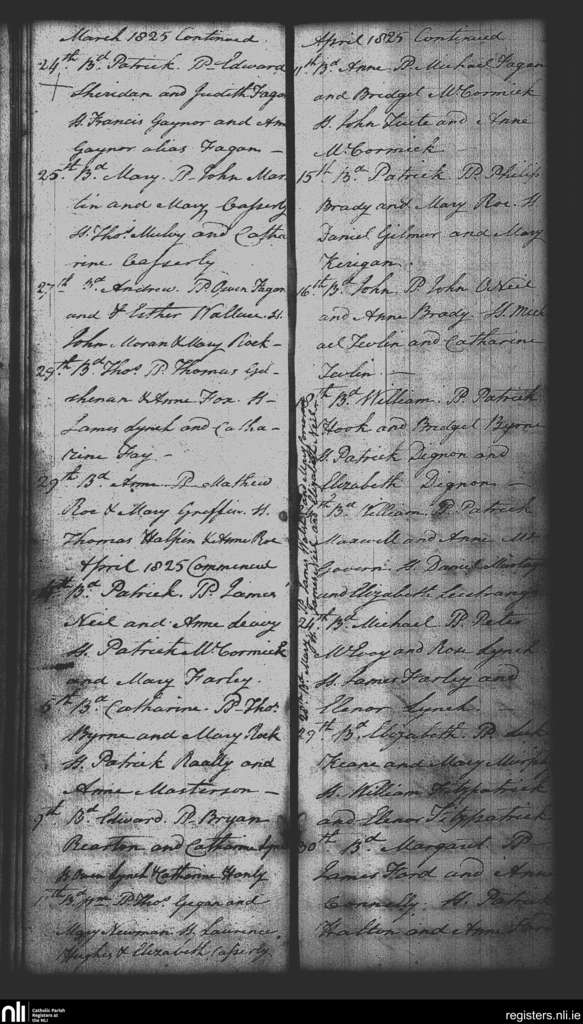 March 1825 Continued
24th Bd Patrick. PP Edward
Sheridan and Judith Fagan
St. Francis Gaynor and Ann
Gaynor alias Fagan —
25th Bd Mary. P. John Mar
lin and Mary Casserly
St. Thos. Mulvy and Catha
rine Casserly
27th Bd Andrew. PP Owen Fagan
and Esther Wallace. St.
John Moran & Mary Rock —
29th Bd Thos PP Thomas Ge
shenan & Anne Fox. St
James Lynch and Catha
rine Fay —
29th Bd Anne P. Mathew
Roe & Mary Griffin. St.
Thomas Halpin & Anne Roe
April 1825 Commenced
Bd Patrick. PP James
Neil and Anne Leavy
St. Patrick McCormick
and Mary Farley.
5th Bd Catharine. PP Thos.
Byrne and Mary Rock
St. Patrick Really and
Anne Masterson —
9th Bd Edward. P. Bryan
Bearton and Catharine Lynch
Owen Lynch & Catherine Hanly
Bd Wm PP Thos Gegan and
Mary Newman St. Laurence
Hughes & Elizabeth Casserly.
April 1825 Continued
11th Bd Anne PP Michael Fagan
and Bridget McCormick
St. John Tuite and Anne
McCormick
15th Bd Patrick PP. Philip
Brady and Mary Roe. St.
Daniel Gilmur and Mary
Kerigan.
16th Bd John P. John O Neil
and Anne Brady St. Mich
ael Tevlin and Catharine
Tevlin. —
th Bd William. P. Patrick
Hook and Bridget Byrne
St. Patrick Dignon and
Elizabeth Dignon —
th Bd William P. Patrick
Maxwell and Anne Mc
Govern St. Daniel Murtay
and Elizabeth Lestrange
20th Bd Mary PP James and Mary
St. James Neil and Elizabeth Neil
24th Bd Michael PP Peter
McEvoy and Rose Lynch
St. James Farley and
Elenor Lynch. —
29th Bd Elizabeth. PP Luke
Keane and Mary Murph
St. William Fitzpatrick
and Elenor Fitzpatrick
30th Bd Margaret PP
James Ford and Anne
Connelly. St. Patrick
Halton and Anne Ford
nli
Catholic Parish
Registers at
the NLI
registers.nli.ie